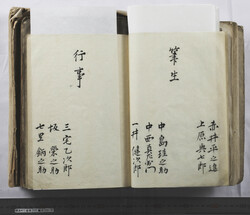 筆生
赤井平之進
上原與七郎
中島理之助
中西真左衛門
一井健次郎
行事
三宅乙次郎
坂榮之助
七里鍋之助